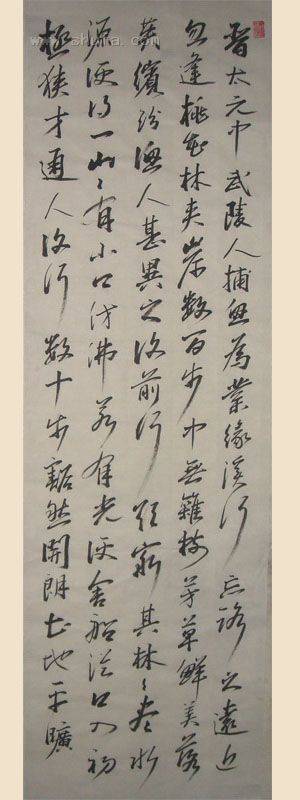 晉太元中武陵人捕魚為業緣溪行忘路之遠近
忽逢桃花林夾岸數百步中無雜樹芳草鮮美落
英繽紛漁人甚異之復前行欲窮其林〻盡水
源便得一山〻有小口仿佛若有光便舍船從口入初
極狹才通人復行數十步豁然開朗土地平曠